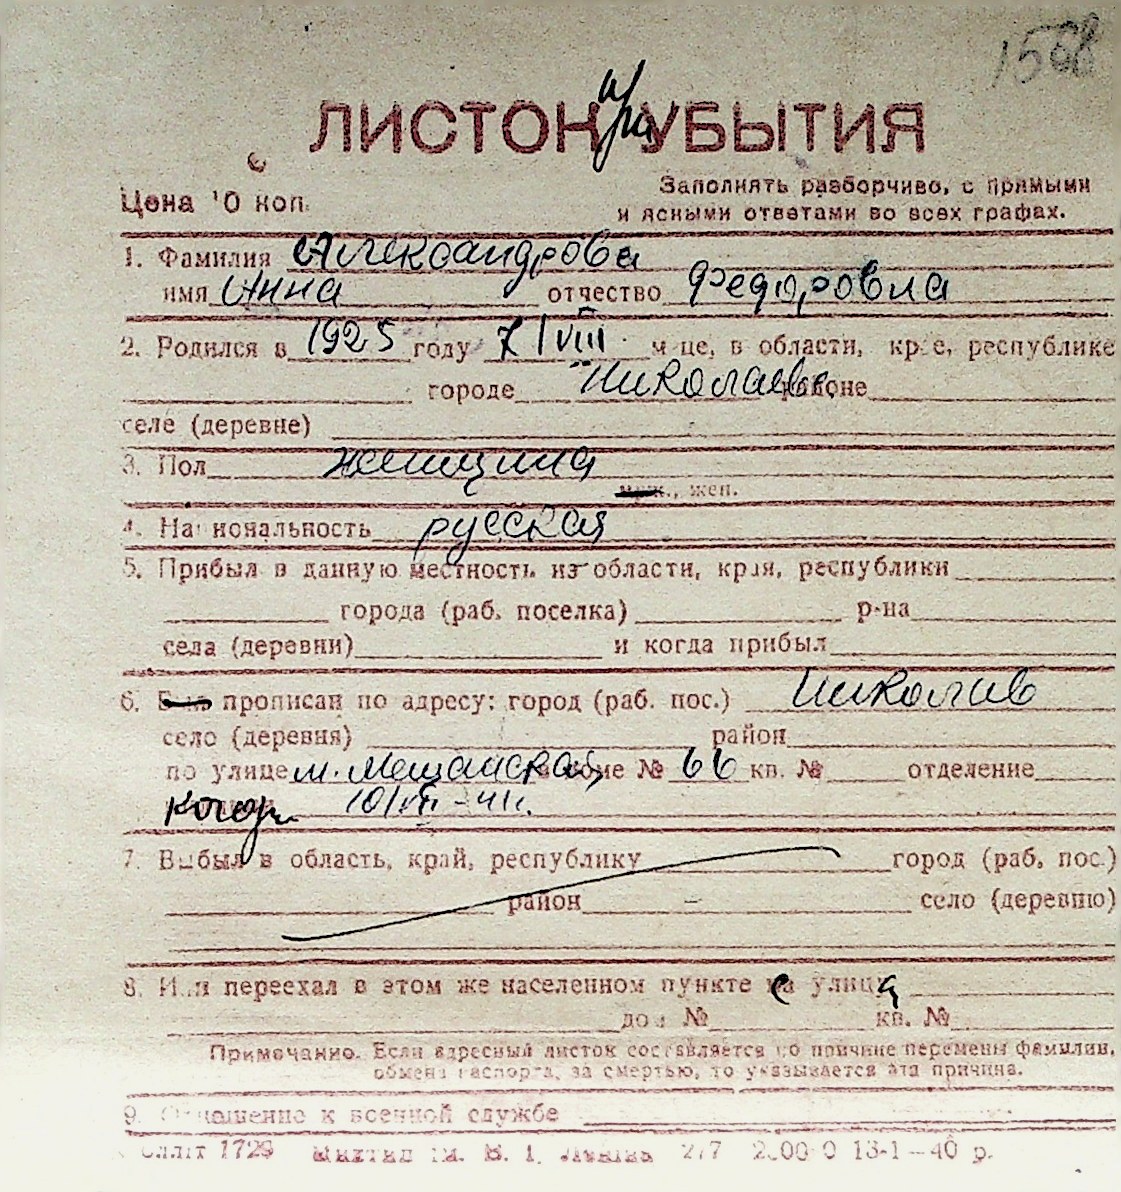 ЛИСТОК УБЫТИЯ
при
Цена 10 коп.
Заполнять разборчиво, с прямыми
и ясными ответами во всех графах.
1. Фамилия Александрова
имя Анна отчество Федоровна
2. Родился в 1925 году 7/VIII м-це, в области, крае, республике
городе Николаев районе
селе (деревне)
3. Пол женщина
муж., жен.
4. Национальность русская
5. Прибыл в данную местность из области, края, республики
города (раб. поселка) р-на
села (деревни) и когда прибыл
6. Был прописан по адресу: город (раб. пос.) Николаев
село (деревня) район
по улице м. Мещанская доме № 66 кв. № отделение
когда 10/VII-41г.
7. Выбыл в область, край, республику город (раб. пос.)
район село (деревню)
8. Или переехал в этом же населенном пункте с улица
дом № кв. №
Примечание. Если адресный листок составляется по причине перемены фамилии,
обмена паспорта, за смертью, то указывается эта причина.
9. Отношение к военной службе
1729 им. В. І. Леніна 277 13-1—40 р.